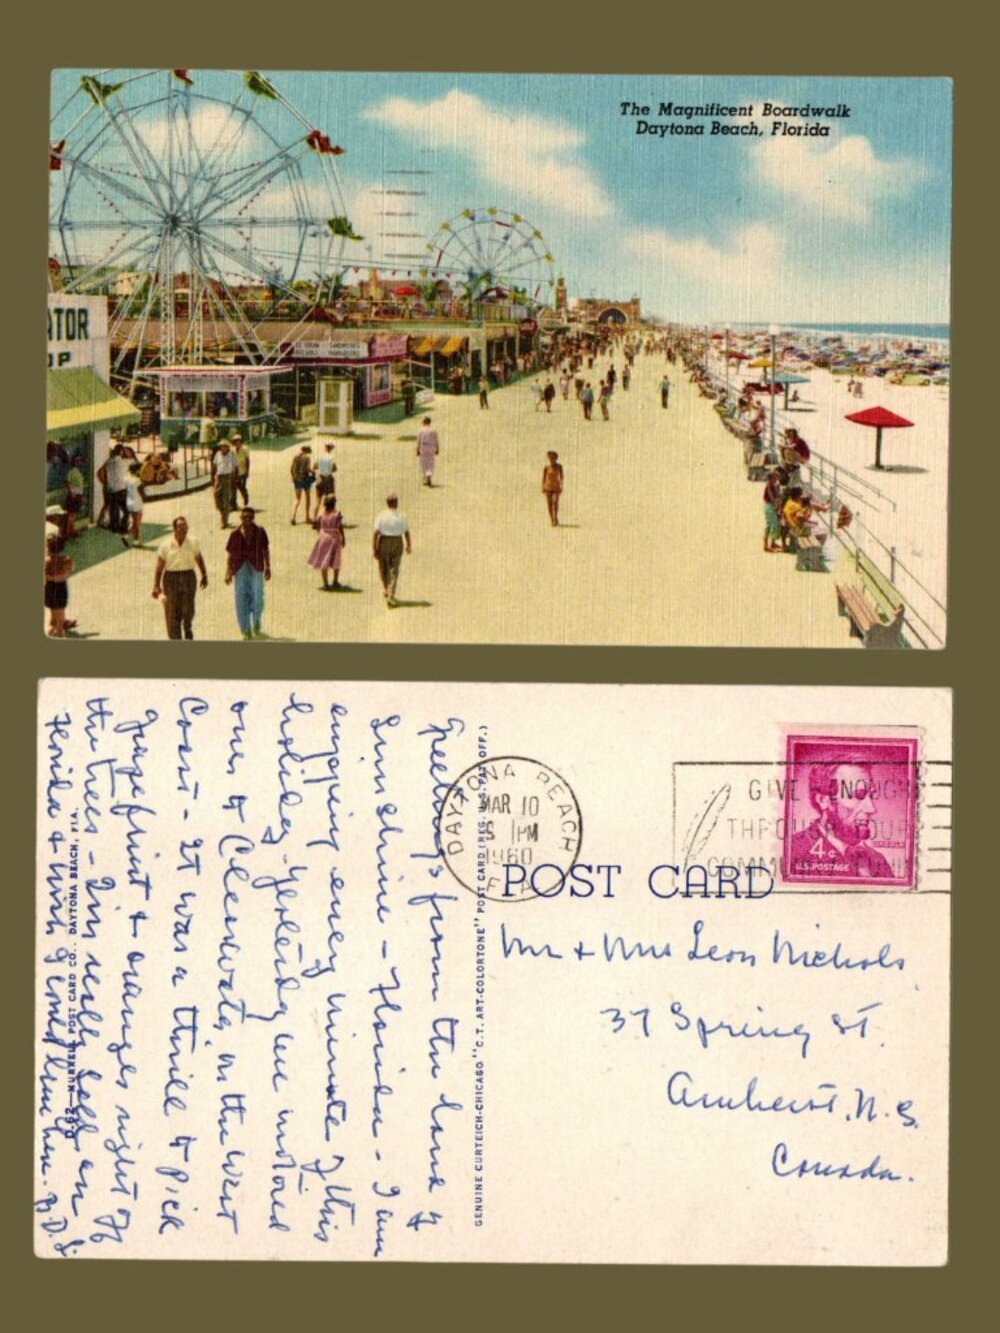 The Magnificent Boardwalk
Daytona Beach, Florida
ATOR
OP
SANDWICHES
Greetings from the land of
Sunshine - Florida - I am
enjoying every minute of this
holiday. Yesterday we motored
over to Clearwater, on the west
Coast - It was a thrill to pick
grapefruit + oranges right off
the trees - I'm really sold on
Florida & wish I could
D-92—MURRELL POST CARD CO., DAYTONA BEACH, FLA.
GENUINE CURTEICH-CHICAGO "C.T. ART-COLORTONE" POST CARD (REG. U.S. PAT. OFF.)
DAYTONA BEACH
MAR 10
PM
1960
FLA
GIVE ENOUGH
THROUGH YOUR
POST CARD
LINCOLN
4¢
U.S. POSTAGE
Mr + Mrs Leon Nichols
37 Spring St.
Amherst, N.S.
Canada.